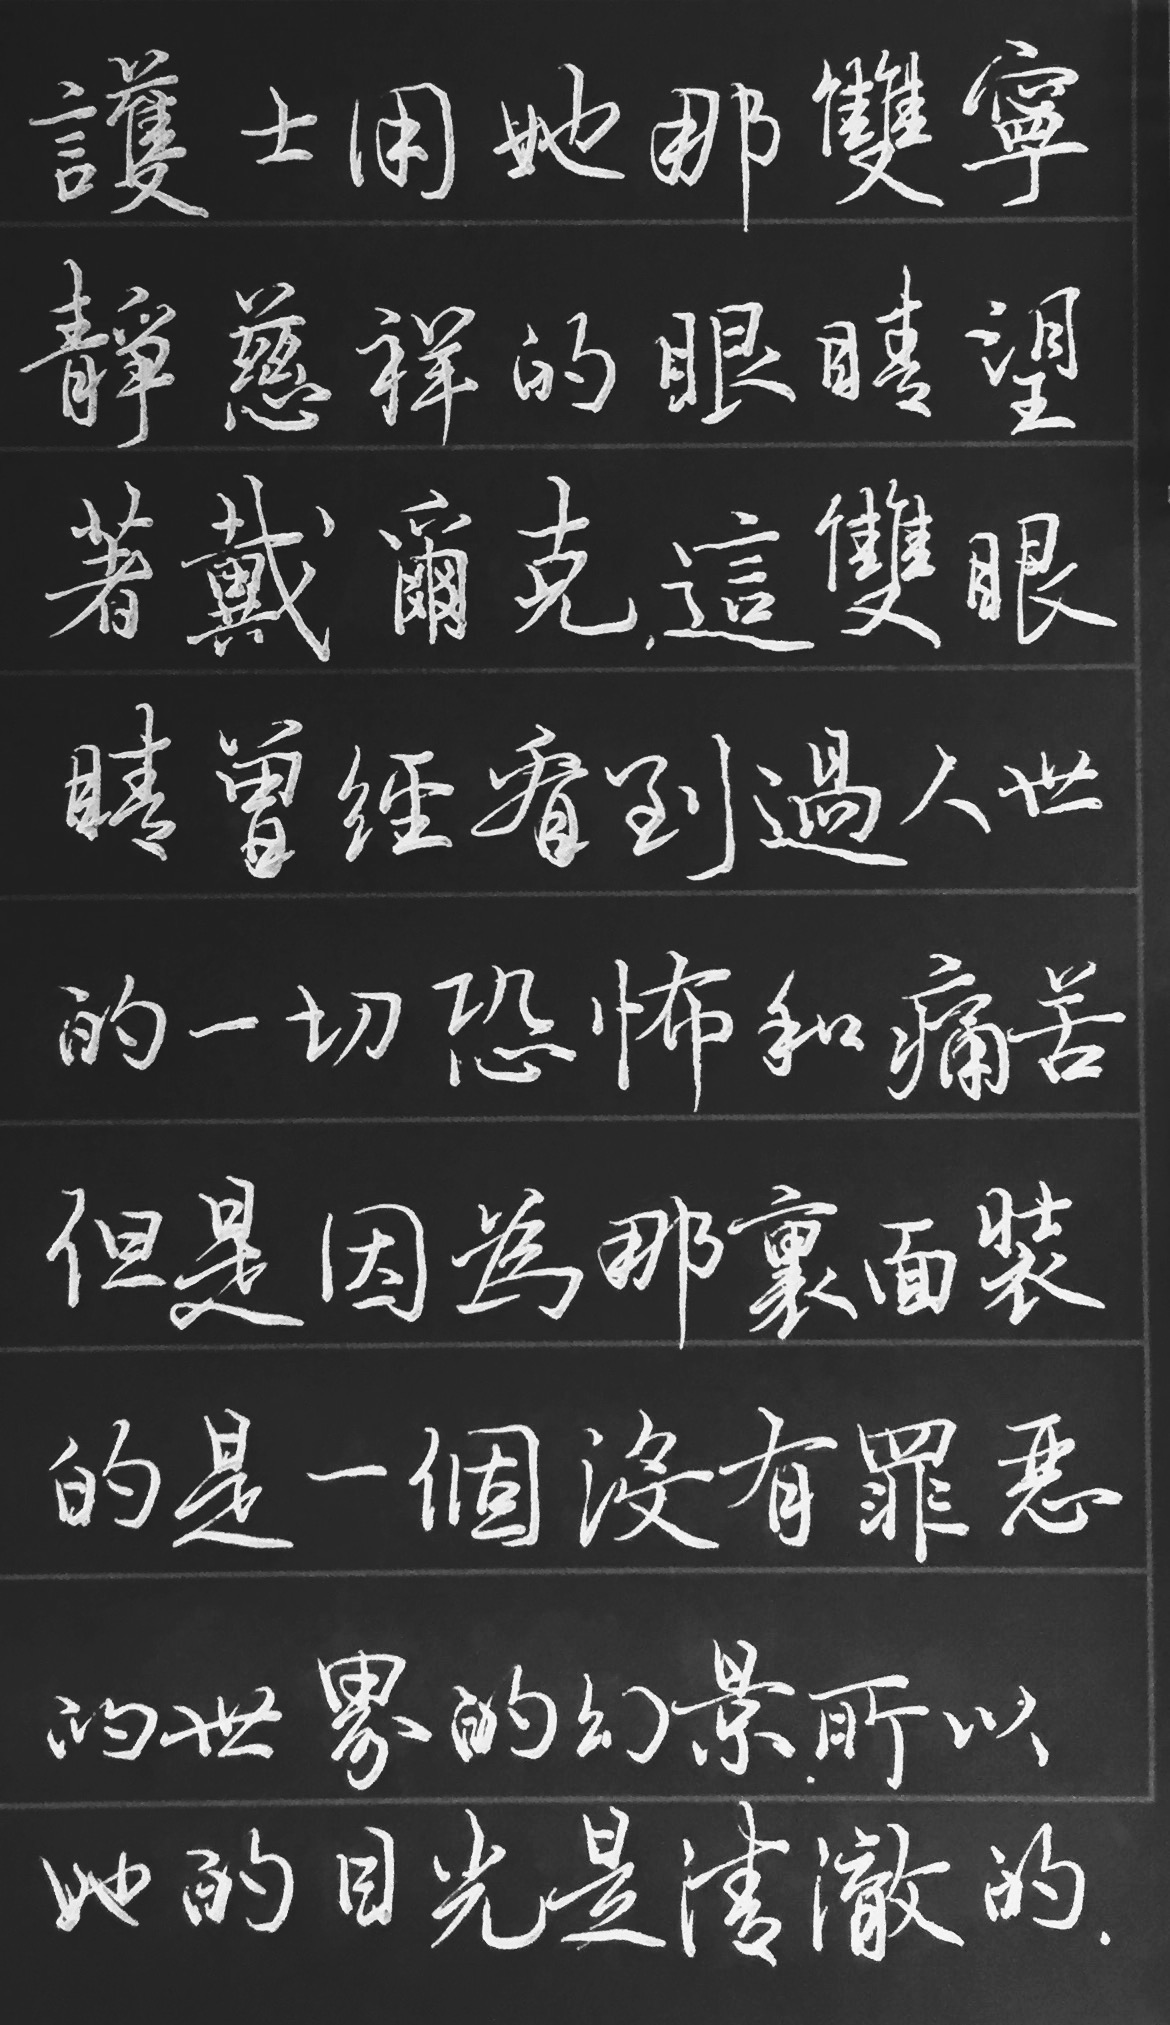 護士用她那雙寧
靜慈祥的眼睛望
著戴爾克.這雙眼
睛曾經看到過人世
的一切恐怖和痛苦
但是因為那裏面裝
的是一個沒有罪惡
的世界的幻景.所以
她的目光是清澈的.